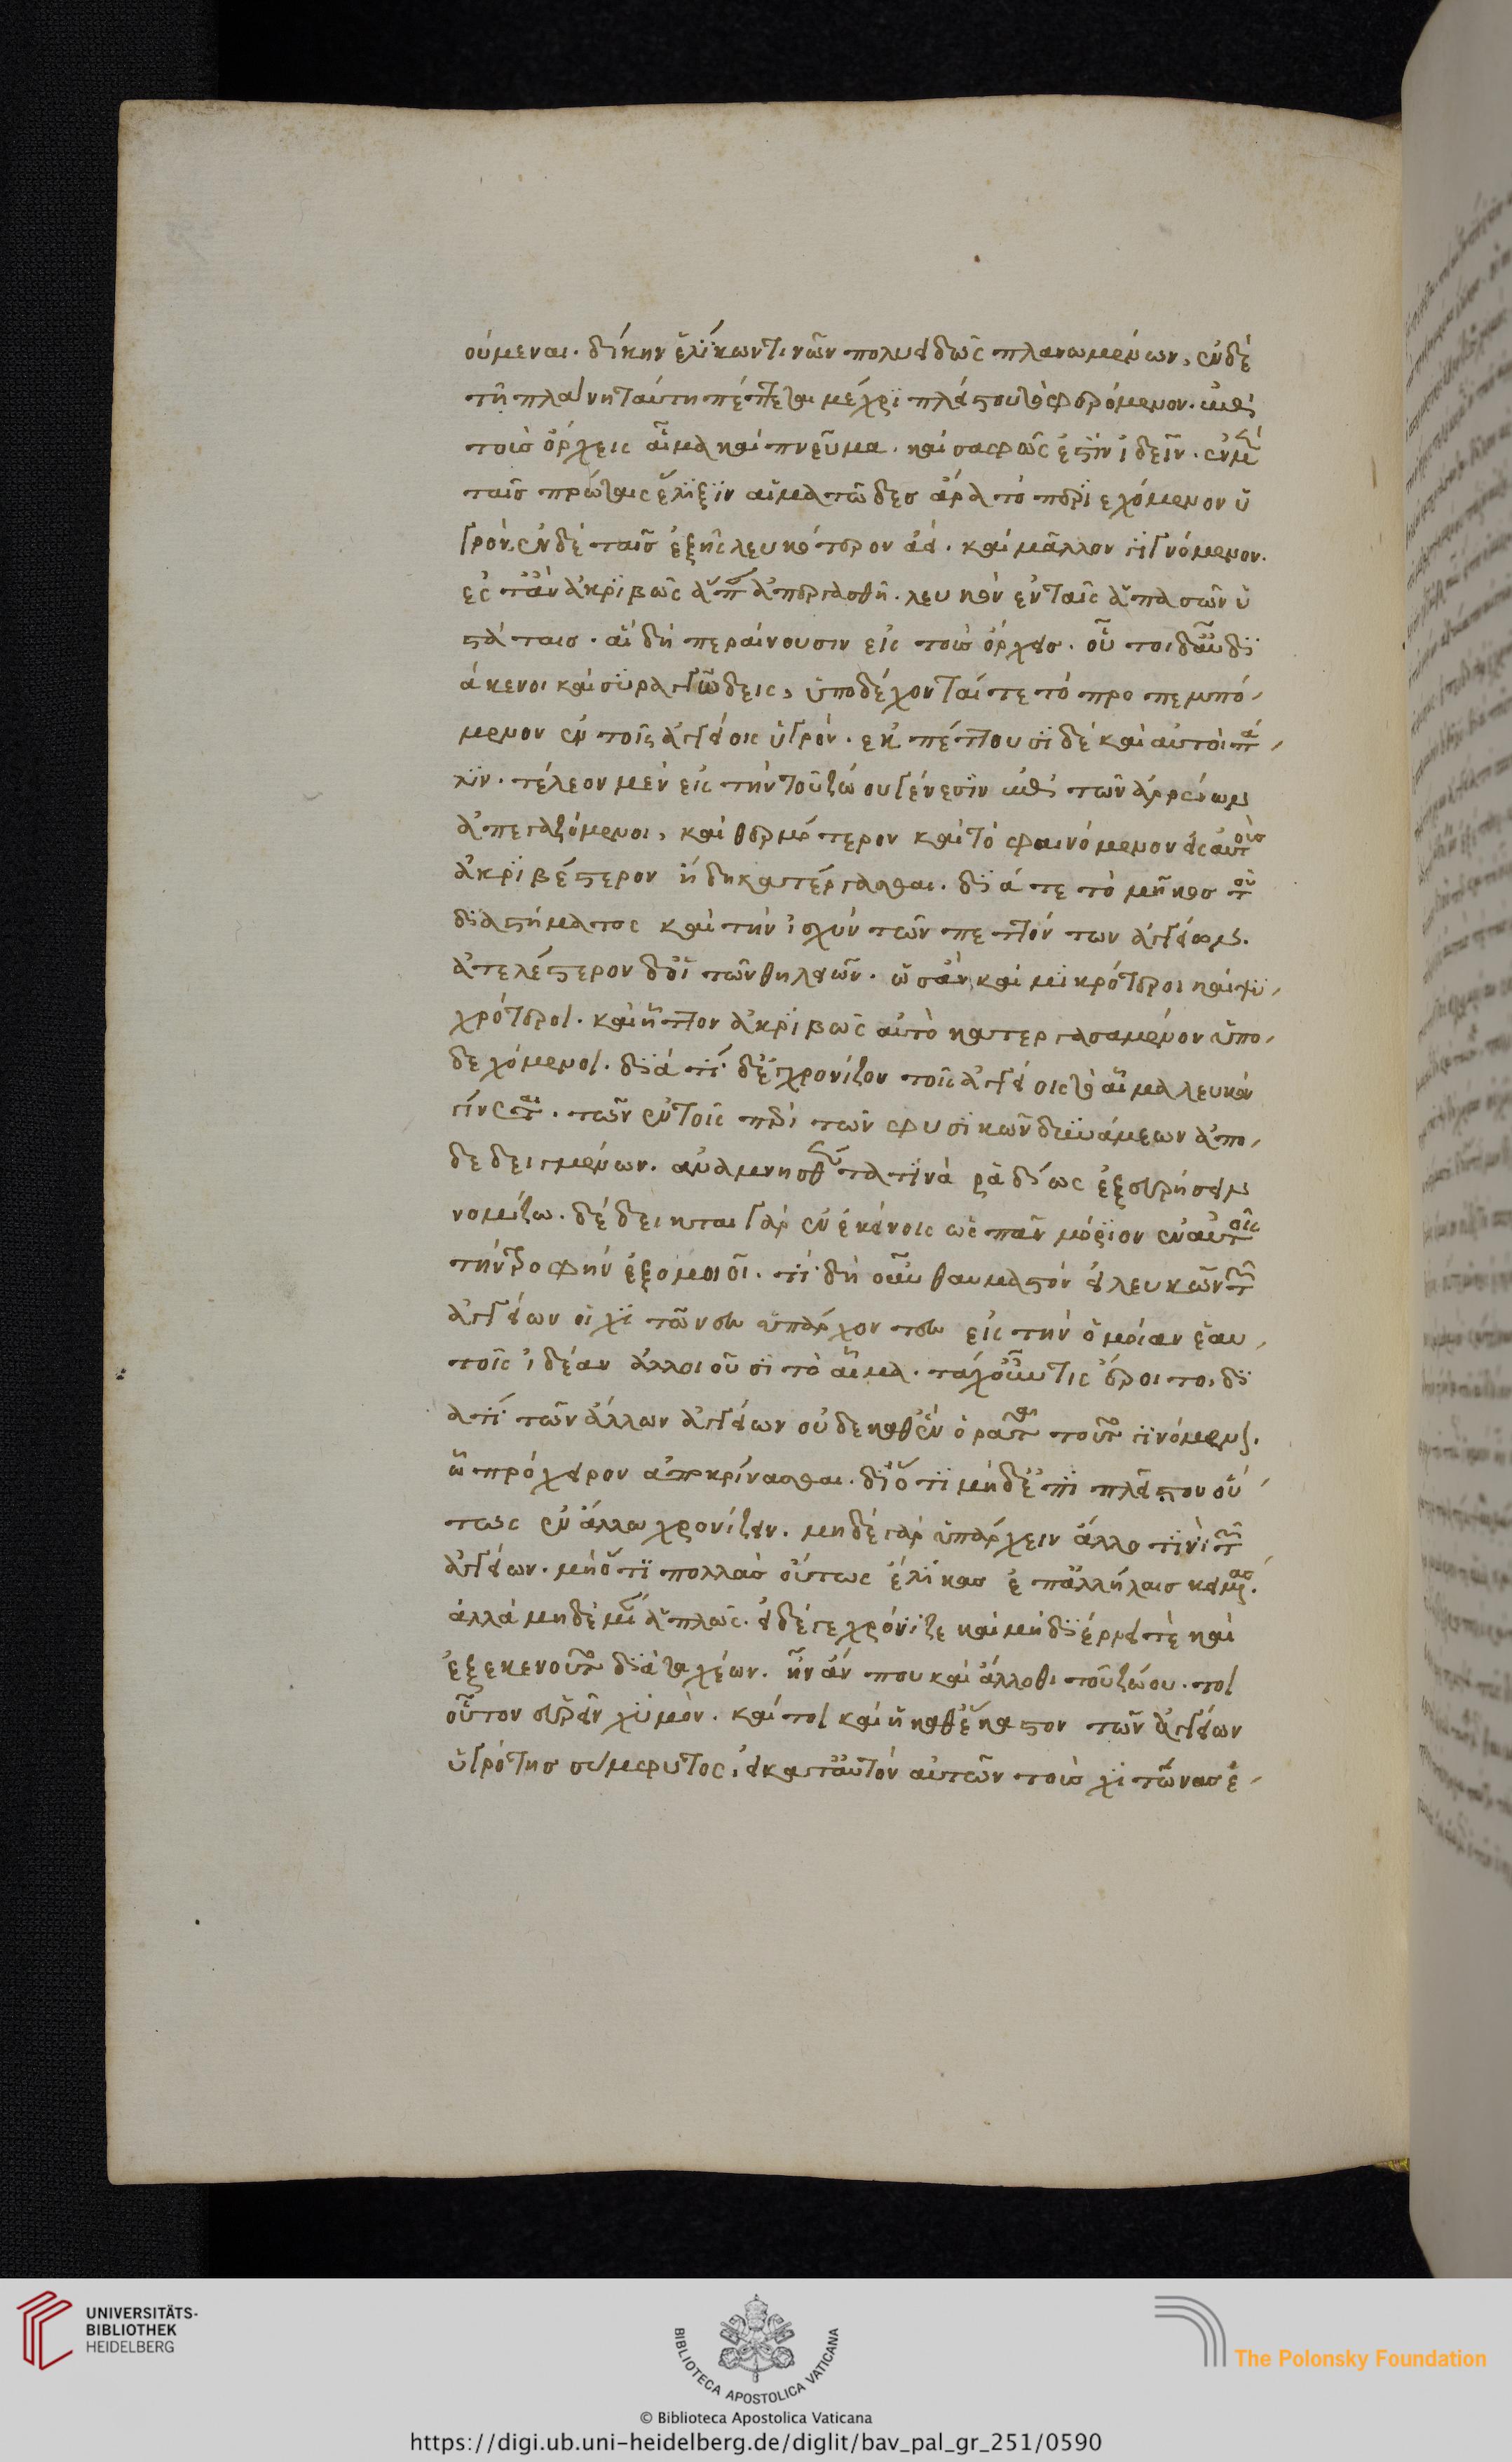 ούμεναι. δίκην ἑλίκων τινῶν πολυειδῶς πλανωμένων, ἐν δὲ
τῆ πλάνη ταύτη πέπτεται μέχρι πλείστου τὸ φερόμενον ἐπὶ
τοὺς ὄρχεις αἷμα καὶ πνεῦμα. καὶ σαφῶς ἐστὶν ἰδεῖν. ἐν μὲν
ταῖς πρώταις ἕλιξιν αἱματῶδες ἄρα τὸ περιεχόμενον ὑ
γρόν. ἐν δὲ ταῖς ἑξῆς λευκότερον ἀεὶ. καὶ μᾶλλον γιγνόμενον.
ἔς τ' ἂν ἀκριβῶς ἅπαν ἀπεργασθῆ. λευκὸν ἐν ταῖς ἁπασῶν ὑ
στάταις. αἳ δὴ περαίνουσιν εἰς τοὺς ὄρχεις. οὗτοι δ' αὖ δι
άκενοι καὶ συραγγώδεις, ὑποδέχονταί τε τὸ προπεμπό
μενον ἐν τοῖς ἀγγείοις ὑγρόν. ἐκπέπτουσι δὲ καὶ αὐτοὶ πά
λιν. τέλεον μὲν εἰς τὴν τοῦ ζώου γένεσιν ἐπὶ τῶν ἀρρένων
ἀπεργαζόμενοι, καὶ θερμότερον καὶ τὸ φαινόμενον εἰς αὐτοὺς
ἀκριβέστερον ἤδη κατειργάσθαι. διά τε τὸ μῆκος τοῦ
διαστήματος καὶ τὴν ἰσχὺν τῶν πεπτόντων ἀγγείων.
ἀτελέστερον δ' ἐπὶ τῶν θηλειῶν. ὡς ἂν καὶ μικρότεροι καὶ ψυ
χρότεροι. καὶ ἧττον ἀκριβῶς αὐτὸ κατεργασαμένον ὑπο
δεχόμενοι. διὰ τί δ' ἐγχρονίζον τοῖς ἀγγείοις τὸ αἷμα λευκὸν
γίνεται. τῶν ἐν τοῖς περὶ τῶν φυσικῶν δυνάμεων ἀπο
δεδειγμένων. ἀναμνησθέντα τινὰ ῥαδίως ἐξευρήσειν
νομίζω. δέδεικται γὰρ ἐν ἐκείνοις ὡς πᾶν μόριον ἐν αὐτοῖς
τὴν τροφὴν ἐξομοιοῖ. τί δὴ οὖν θαυμαστὸν εἰ λευκῶν τῶν
ἀγγείων οἱ χιτῶνες ὑπάρχοντες εἰς τὴν ὁμοίαν ἑαυ
τοῖς ἰδέαν ἀλλοιοῦσι τὸ αἷμα. τάχ' οὖν τις ἔροιτο, δι
ατί τῶν ἄλλων ἀγγείων οὐδὲ καθ' ἓν ὁρᾶται τοῦτο γινόμενον.
ᾧ πρόχειρον ἀποκρίνασθαι. διότι μὴδ' ἐπὶ πλεῖστον οὕ
τως ἐν ἄλλω χρονίζειν. μηδὲ γὰρ ὑπάρχειν ἄλλο τινὶ τῶν
ἀγγείων. μὴ ὅτι πολλὰς οὕτως ἕλικας ἐπ' ἀλλήλαις κειμένας.
ἀλλὰ μηδὲ μίαν ἁπλῶς. εἰ δέ γε χρόνιζε καὶ μὴ διέρρει τὲ καὶ
ἐξεκενοῦτο διὰ ταχέων. ἦν ἄν που καὶ ἄλλοθι τοῦ ζώου. τοι
οῦτον εὑρεῖν χυμόν. καί τοι καὶ ἡ καθ' ἕκαστον τῶν ἀγγείων
ὑγρότης σύμφυτος, εἰ κατ' αὐτὸν αὐτῶν τοὺς χιτῶνας ἐ
UNIVERSITÄTS-
BIBLIOTHEK
HEIDELBERG
BIBLIOTECA APOSTOLICA VATICANA
The Polonsky Foundation
© Biblioteca Apostolica Vaticana
https://digi.ub.uni-heidelberg.de/diglit/bav_pal_gr_251/0590